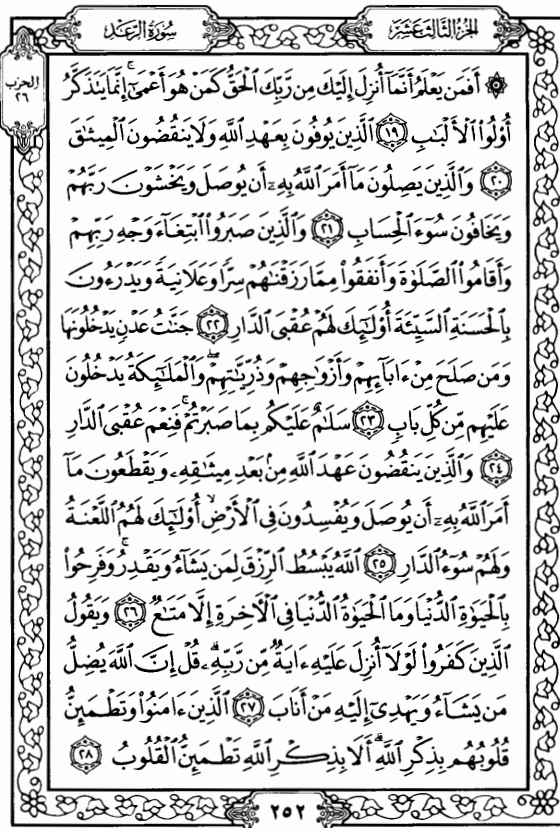 سُورَةُ الرَّعۡدِ
الجُزْءُ الثَّالِثَ عَشَرَ
الحزب
٢٦
۞ أَفَمَن يَعۡلَمُ أَنَّمَآ أُنزِلَ إِلَيۡكَ مِن رَّبِّكَ ٱلۡحَقُّ كَمَنۡ هُوَ أَعۡمَىٰٓۚ إِنَّمَا يَتَذَكَّرُ
أُوْلُواْ ٱلۡأَلۡبَٰبِ ١٩ ٱلَّذِينَ يُوفُونَ بِعَهۡدِ ٱللَّهِ وَلَا يَنقُضُونَ ٱلۡمِيثَٰقَ
٢٠ وَٱلَّذِينَ يَصِلُونَ مَآ أَمَرَ ٱللَّهُ بِهِۦٓ أَن يُوصَلَ وَيَخۡشَوۡنَ رَبَّهُمۡ
وَيَخَافُونَ سُوٓءَ ٱلۡحِسَابِ ٢١ وَٱلَّذِينَ صَبَرُواْ ٱبۡتِغَآءَ وَجۡهِ رَبِّهِمۡ
وَأَقَامُواْ ٱلصَّلَوٰةَ وَأَنفَقُواْ مِمَّا رَزَقۡنَٰهُمۡ سِرّٗا وَعَلَانِيَةٗ وَيَدۡرَءُونَ
بِٱلۡحَسَنَةِ ٱلسَّيِّئَةَ أُوْلَٰٓئِكَ لَهُمۡ عُقۡبَى ٱلدَّارِ ٢٢ جَنَّٰتُ عَدۡنٖ يَدۡخُلُونَهَا
وَمَن صَلَحَ مِنۡ ءَابَآئِهِمۡ وَأَزۡوَٰجِهِمۡ وَذُرِّيَّٰتِهِمۡۖ وَٱلۡمَلَٰٓئِكَةُ يَدۡخُلُونَ
عَلَيۡهِم مِّن كُلِّ بَابٖ ٢٣ سَلَٰمٌ عَلَيۡكُم بِمَا صَبَرۡتُمۡۚ فَنِعۡمَ عُقۡبَى ٱلدَّارِ
٢٤ وَٱلَّذِينَ يَنقُضُونَ عَهۡدَ ٱللَّهِ مِنۢ بَعۡدِ مِيثَٰقِهِۦ وَيَقۡطَعُونَ مَآ
أَمَرَ ٱللَّهُ بِهِۦٓ أَن يُوصَلَ وَيُفۡسِدُونَ فِي ٱلۡأَرۡضِ أُوْلَٰٓئِكَ لَهُمُ ٱللَّعۡنَةُ
وَلَهُمۡ سُوٓءُ ٱلدَّارِ ٢٥ ٱللَّهُ يَبۡسُطُ ٱلرِّزۡقَ لِمَن يَشَآءُ وَيَقۡدِرُۚ وَفَرِحُواْ
بِٱلۡحَيَوٰةِ ٱلدُّنۡيَا وَمَا ٱلۡحَيَوٰةُ ٱلدُّنۡيَا فِي ٱلۡأٓخِرَةِ إِلَّا مَتَٰعٞ ٢٦ وَيَقُولُ
ٱلَّذِينَ كَفَرُواْ لَوۡلَآ أُنزِلَ عَلَيۡهِ ءَايَةٞ مِّن رَّبِّهِۦۚ قُلۡ إِنَّ ٱللَّهَ يُضِلُّ
مَن يَشَآءُ وَيَهۡدِيٓ إِلَيۡهِ مَنۡ أَنَابَ ٢٧ ٱلَّذِينَ ءَامَنُواْ وَتَطۡمَئِنُّ
قُلُوبُهُم بِذِكۡرِ ٱللَّهِۗ أَلَا بِذِكۡرِ ٱللَّهِ تَطۡمَئِنُّ ٱلۡقُلُوبُ ٢٨
٢٥٢